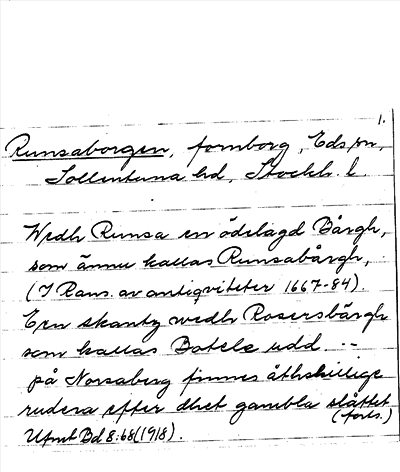 1.
Runsaborgen, fornborg, Eds sn,
Sollentuna hd, Stockh. l.
Wedh Runsa en ödelagd Bårgh,
som ännu kallas Runsabårgh,
(I Rans. av antiqviteter 1667-84).
Een skantz wedh Rosersbärgh
som kallas Botele udd. --
på Norsaberg finnes åthskillige
rudera effter dhet gambla slåttet
(forts.)
Ufmt Bd 8:68 (1918).